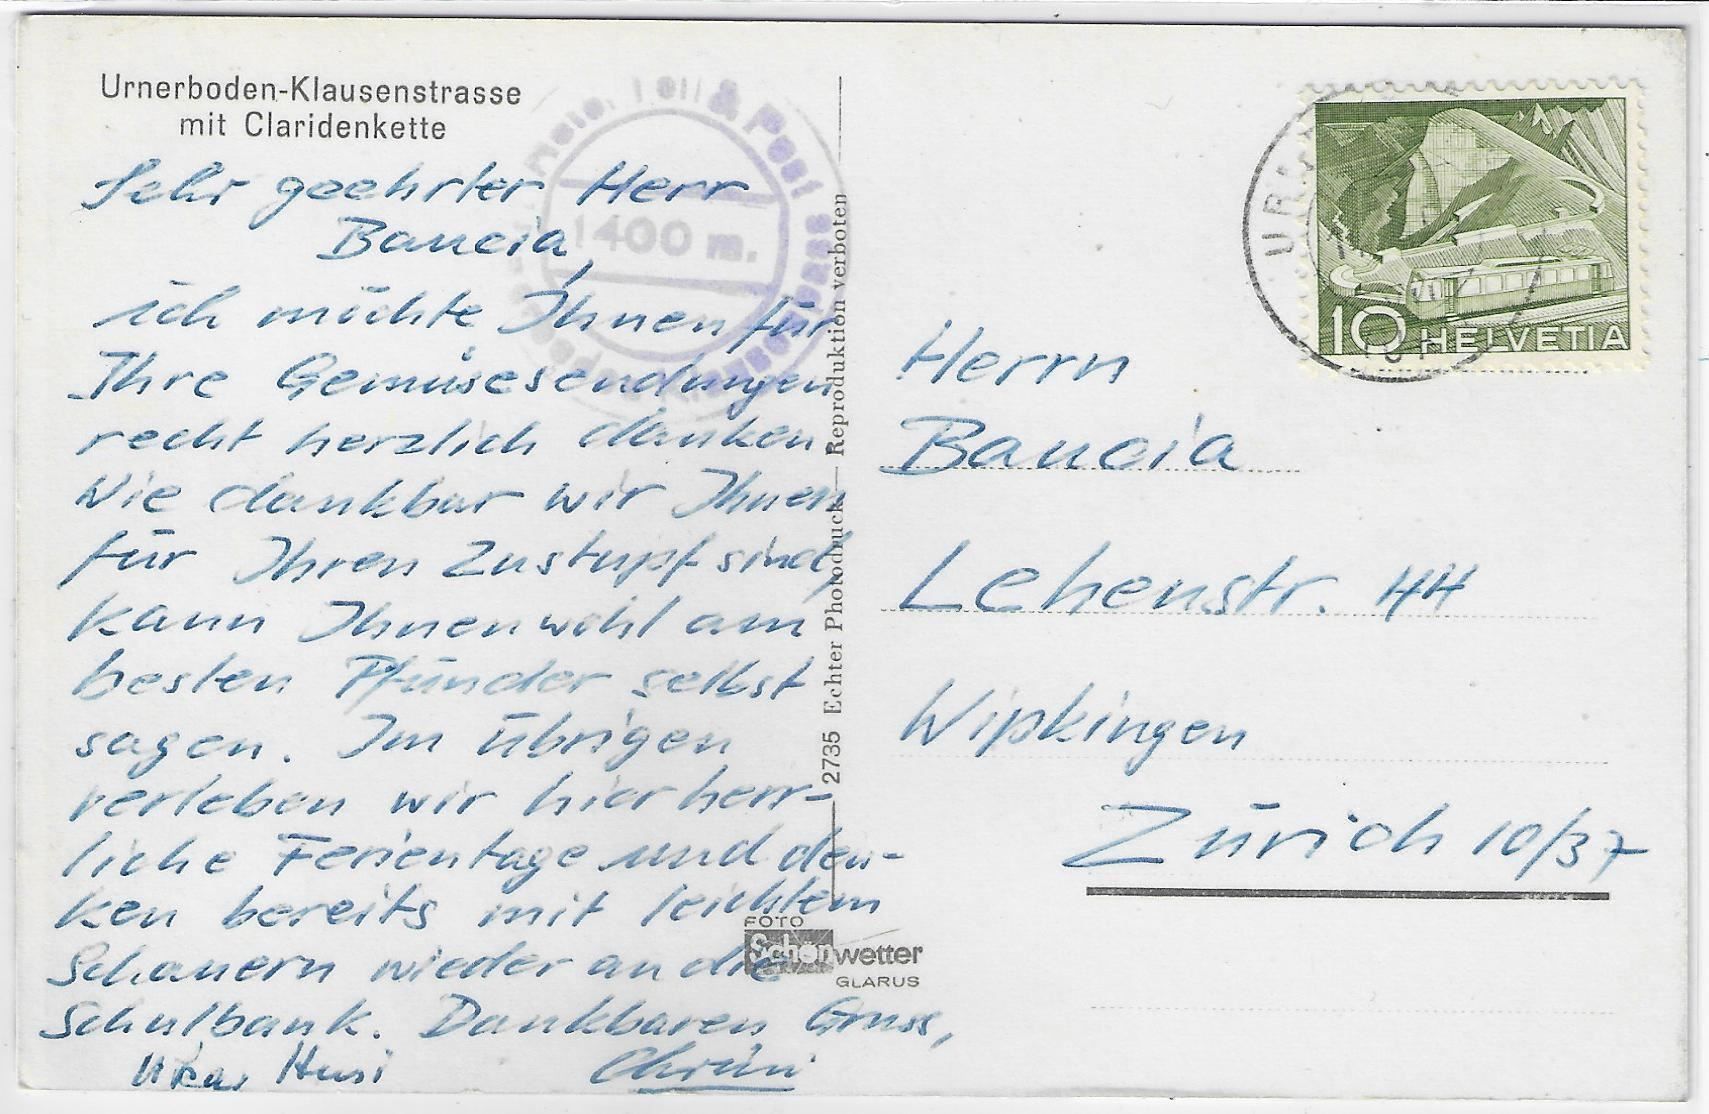 Urnerboden-Klausenstrasse
mit Claridenkette
Sehr geehrter Herr
Baucia,
ich möchte Ihnen für
Ihre Gemüsesendungen
recht herzlich danken.
Wie dankbar wir Ihnen
für Ihren Zustupf sind,
kann Ihnen wohl am
besten Pfünder selbst
sagen. Im übrigen
verleben wir hier herr-
liche Ferientage und den-
ken bereits mit leichtem
Schauern wieder an die
Schulbank. Dankbaren Gruss,
Husi
& Post
1400 m.
2735 Echter Photodruck — Reproduktion verboten
FOTO
Schönwetter
GLARUS
10 HELVETIA
Herrn
Baucia
Lehenstr. 44
Wipkingen
Zürich 10/37